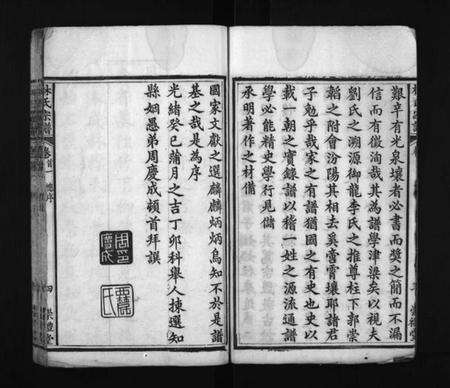 艱辛有光泉壤者必書而獎之簡而不漏
信而有徵洵哉其為譜學津梁矣以視夫
劉氏之溯源御龍李氏之推尊柱下郭崇
韜之附會汾陽其相去奚啻霄壤耶諸君
子勉乎哉家之有譜猶國之有史也史以
載一朝之實錄譜以稽一姓之源流通譜
學必能精史學行見儲
承明著作之材備
國家文獻之選麟麟炳炳烏知不於是譜
基之哉是為序
光緒癸巳蒲月之吉丁卯科舉人揀選知
縣姻愚弟周慶成頓首拜譔
周印慶成
氏宗譜
卷首一
序
四
堂